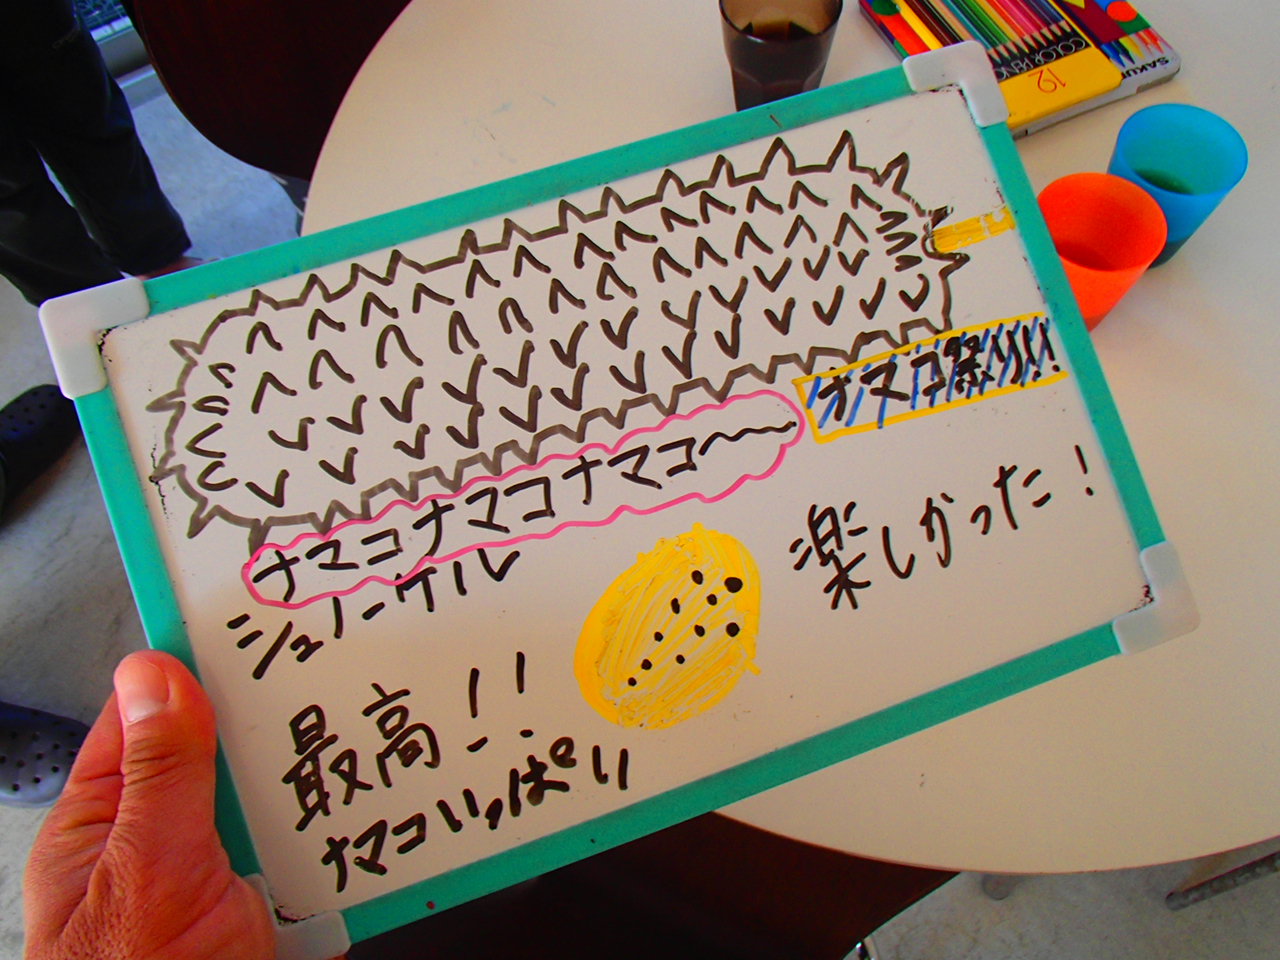 ナマコ祭り!!!
ナマコナマコナマコ〜
シュノーケル
楽しかった!
最高!!
ナマコいっぱい
COLOR PENC
12
SAKU